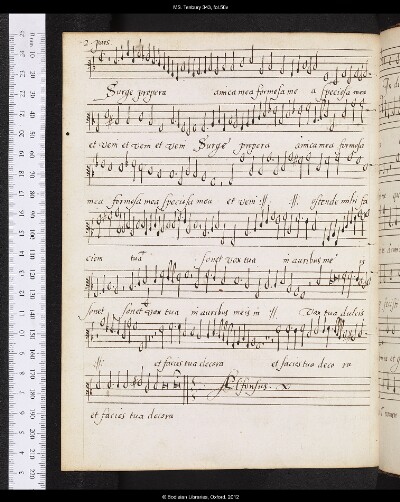 2. pars
Surge propera amica mea formosa me a speciosa mea
et veni et veni et veni Surge propera amica mea formosa
mea formosa mea speciosa mea et veni :||: :||: ostende mihi fa
ciem tuā sonet vox tua in auribus me is
sonet sonet vox tua in auribus meis in :||: Vox tua dulcis
:||: et facies tua decora et facies tua deco ra
Alfonsus.
et facies tua decora
© Bodleian Libraries, Oxford, 2012